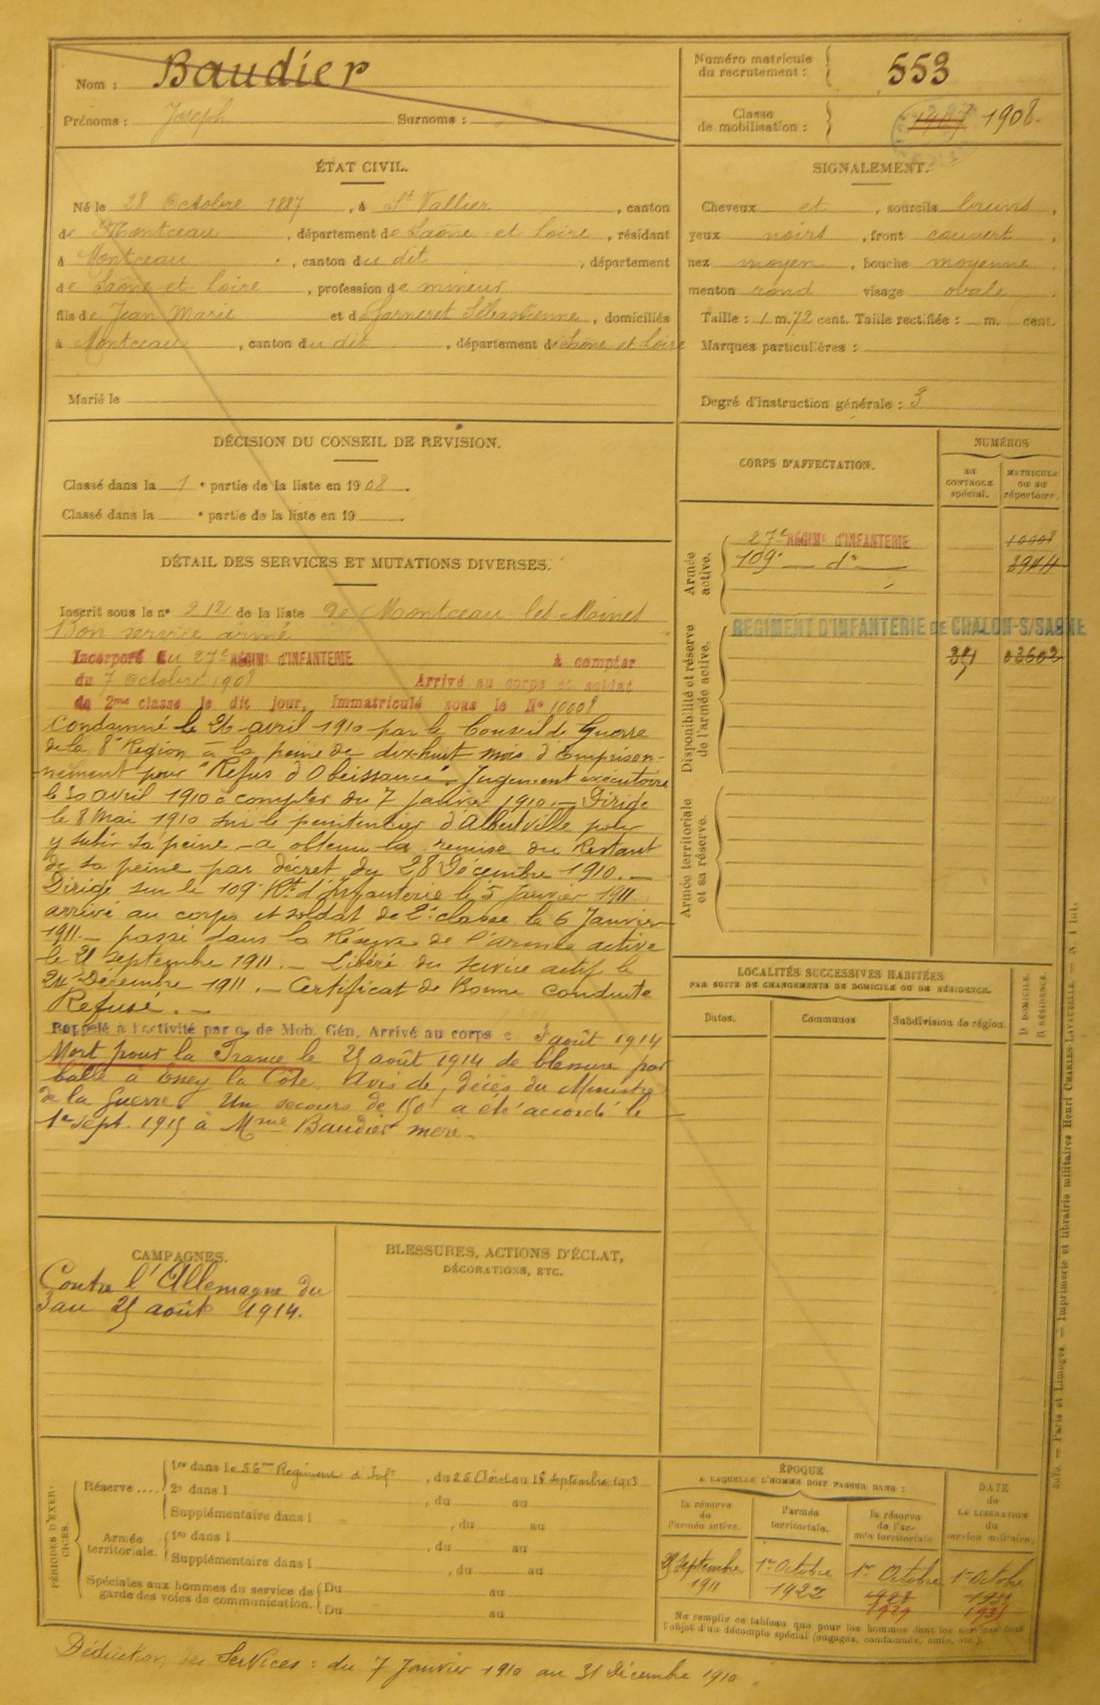 Nom : Baudier
Prénoms : Joseph Surnoms :
Numéro matricule du recrutement : 553
Classe de mobilisation : 1907 1908.
ÉTAT CIVIL.
Né le 28 Octobre 1887, à St Vallier, canton
de Montceau, département de Saône et Loire, résidant
à Montceau, canton du dit, département
de Saône et Loire, profession de mineur
fils de Jean Marie et de Garneret Sébastienne, domiciliés
à Montceau, canton du dit, département de Saône et Loire
Marié le
SIGNALEMENT.
Cheveux et, sourcils bruns,
yeux noirs, front couvert,
nez moyen, bouche moyenne,
menton rond visage ovale.
Taille : 1 m. 72 cent. Taille rectifiée : m. cent.
Marques particulières :
Degré d'instruction générale : 3
DÉCISION DU CONSEIL DE RÉVISION.
Classé dans la 1e partie de la liste en 1908.
Classé dans la e partie de la liste en 19
CORPS D'AFFECTATION.
NUMÉROS
AU CONTROLE spécial.
MATRICULE OU AU répertoire.
Armée active.
27e RÉGIMt D'INFANTERIE 10008
109e do 3944
Disponibilité et réserve de l'armée active.
REGIMENT D'INFANTERIE DE CHALON-S/SAONE
03602
Armée territoriale et sa réserve.
DÉTAIL DES SERVICES ET MUTATIONS DIVERSES.
Inscrit sous le no 212 de la liste de Montceau les Mines
Bon service armé
Incorporé au 27e RÉGIMt D'INFANTERIE à compter
du 7 Octobre 1908 Arrivé au corps et soldat
de 2me classe le dit jour, Immatriculé sous le No 10008
Condamné le 26 avril 1910 par le Conseil de Guerre
de la 8e Région à la peine de dix-huit mois d'Emprison-
nement pour "Refus d'Obéissance". Jugement exécutoire
le 30 avril 1910 à compter du 7 janvier 1910. — Dirigé
le 8 Mai 1910 sur le pénitencier d'Albertville pour
y subir sa peine — a obtenu la remise du Restant
de sa peine par décret du 28 Décembre 1910. —
Dirigé sur le 109e Rt d'Infanterie le 5 Janvier 1911.
arrivé au corps et soldat de 2e classe le 6 Janvier
1911. — passé dans la Réserve de l'armée active
le 21 septembre 1911. — Libéré du service actif le
24 Décembre 1911. — Certificat de Bonne Conduite
Refusé. —
Rappelé à l'activité par o. de Mob. Gén. Arrivé au corps le 3 août 1914
Mort pour la France le 25 août 1914 de blessure par
balle à Essey la Côte. Avis de décès du Ministre
de la Guerre. Un secours de 150f a été accordé le
1er sept. 1915 à Mme Baudier mère.
LOCALITÉS SUCCESSIVES HABITÉES
PAR SUITE DE CHANGEMENTS DE DOMICILE OU DE RÉSIDENCE.
Dates. Communes Subdivision de région.
D. DOMICILE. R. RÉSIDENCE.
CAMPAGNES.
Contre l'Allemagne du
3 au 25 août 1914.
BLESSURES, ACTIONS D'ÉCLAT,
DÉCORATIONS, ETC.
PÉRIODES D'EXERCICES.
Réserve .... 1re dans le 56me Régiment d'Inft, du 26 Août au 18 septembre 1913
2e dans l , du au
Supplémentaire dans l , du au
Armée territoriale. 1re dans l , du au
Supplémentaire dans l , du au
Spéciales aux hommes du service de garde des voies de communication. Du au
Du au
ÉPOQUE
A LAQUELLE L'HOMME DOIT PASSER DANS :
la réserve de l'armée active.
l'armée territoriale.
la réserve de l'armée territoriale
DATE de LA LIBÉRATION du service militaire.
septembre 1911
1er Octobre 1922
1er Octobre 1928 1929
1er Octobre 1935
Ne remplir ce tableau que pour les hommes dont les services font l'objet d'un décompte spécial (engagés, condamnés, omis, etc.).
Déduction des Services : du 7 Janvier 1910 au 31 Décembre 1910.
Paris et Limoges. — Imprimerie et librairie militaires Henri CHARLES-LAVAUZELLE.